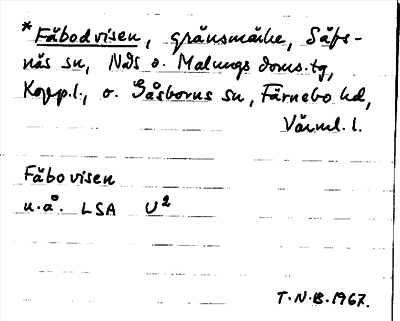 *Fäbodvisen, gränsmärke, Säfs-
näs sn, Nås o. Malungs doms.tg,
Kopp.l., o. Gåsborns sn, Färnebo hd,
Värml. l.
Fäbovisen
u.å. LSA U²
T.N.B. 1967.